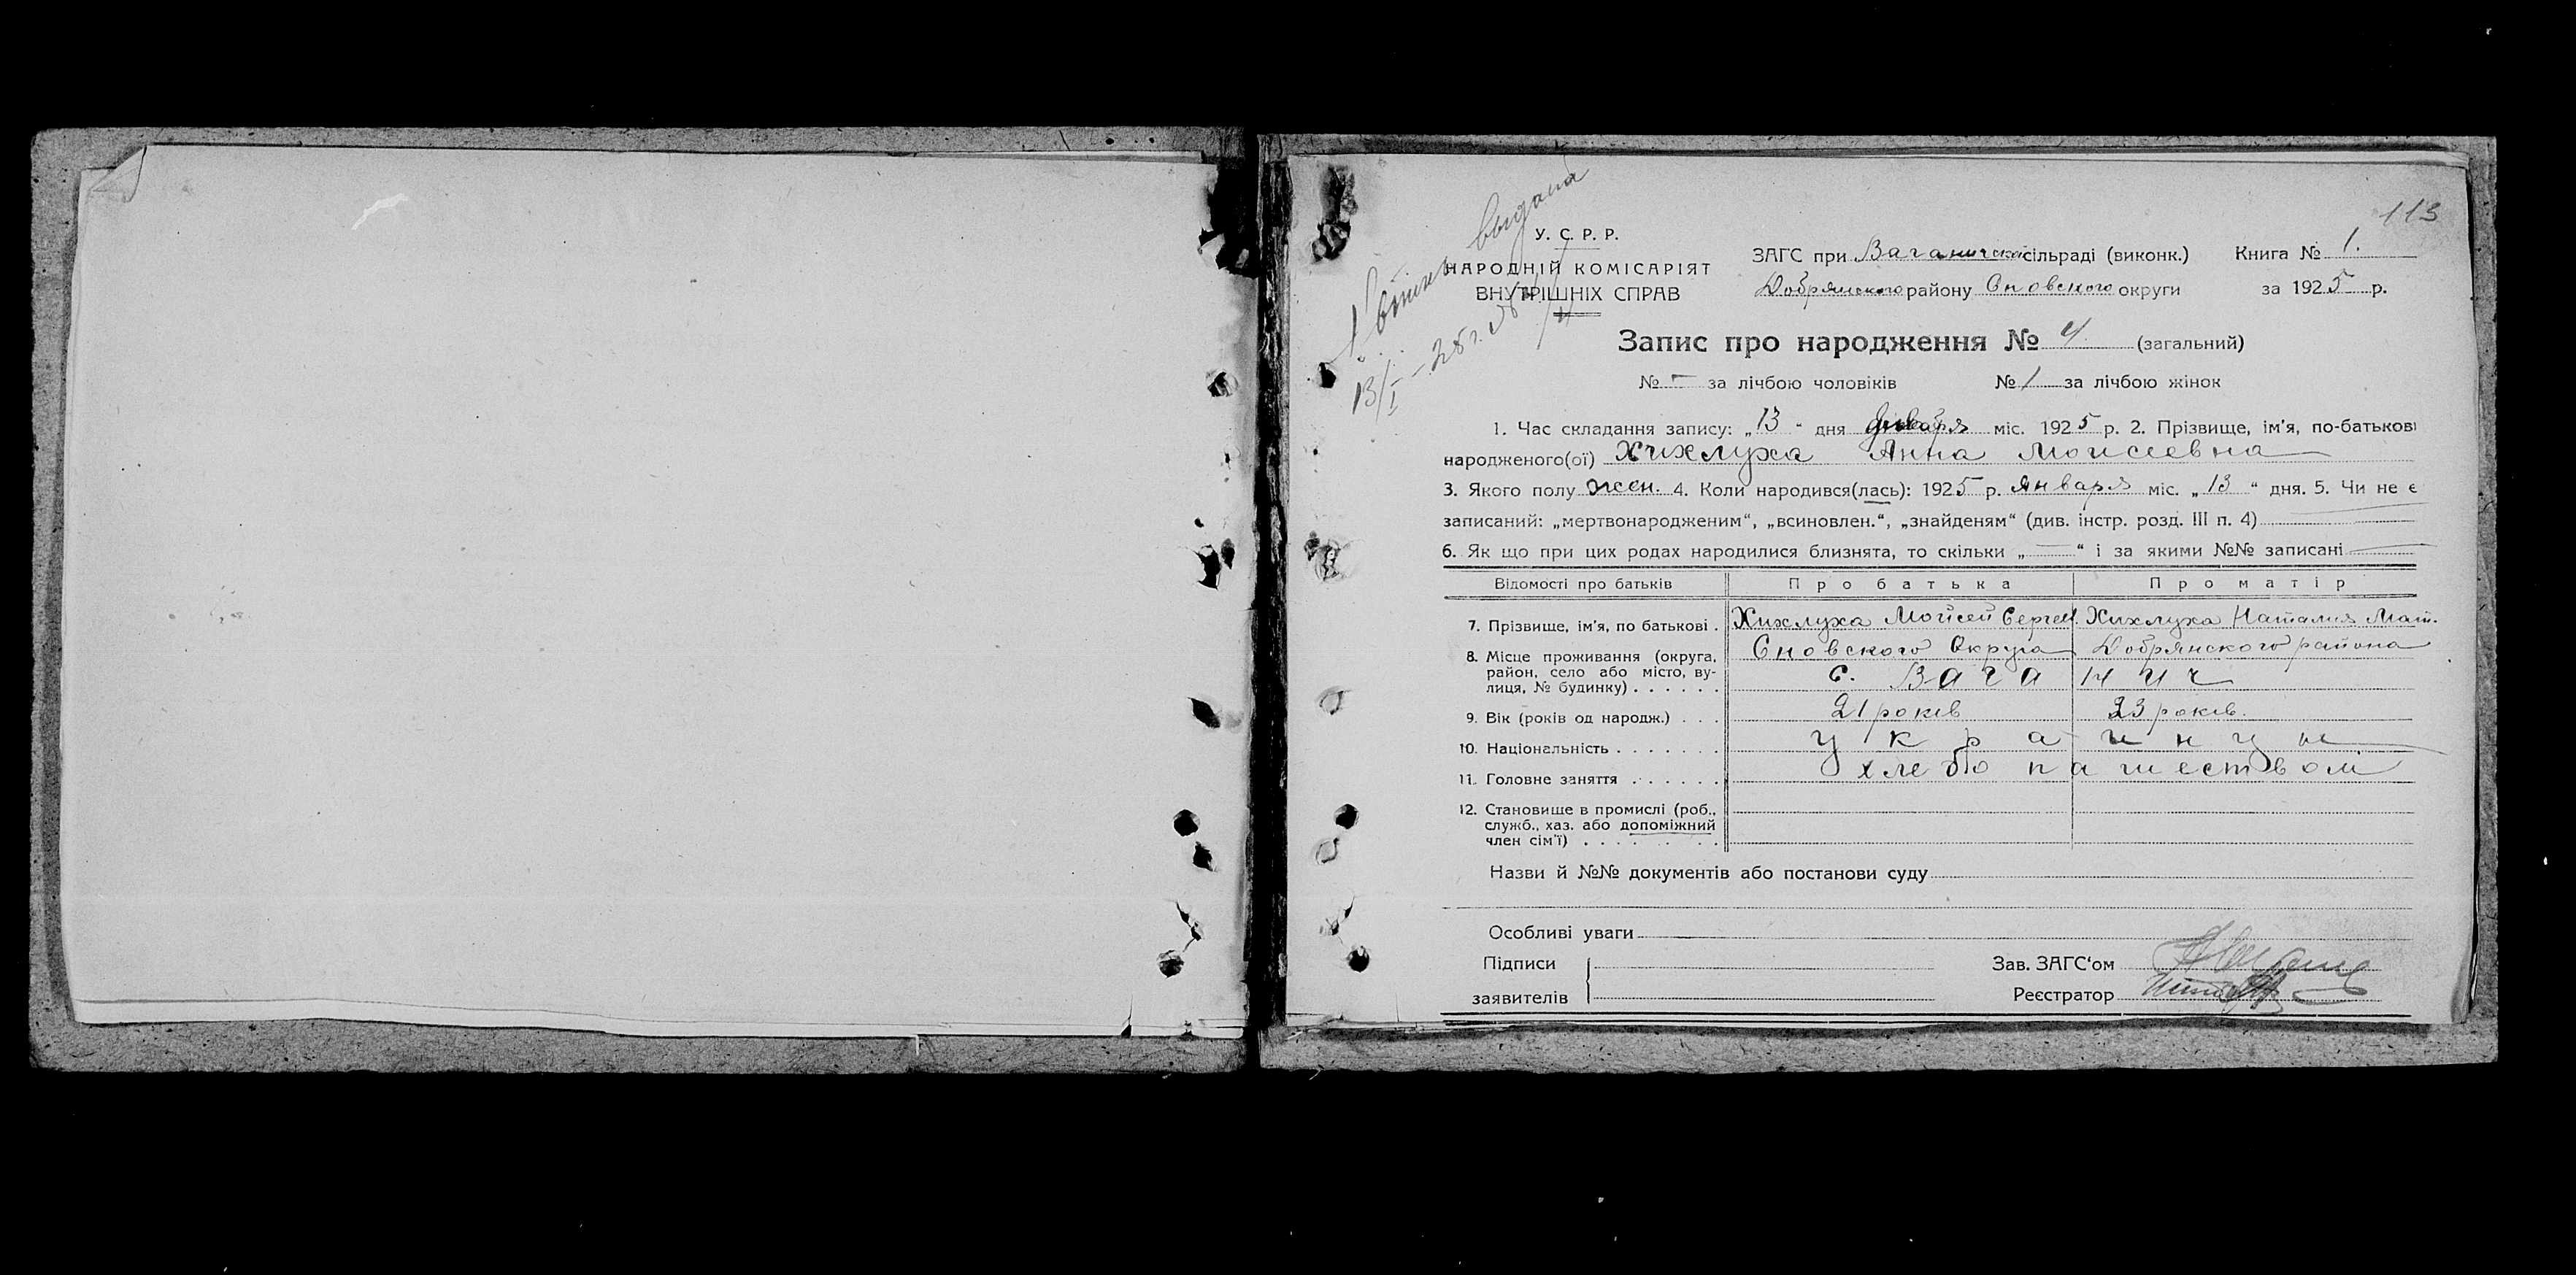 113
выдана
13/I – 25 г. №
У. С. Р. Р.
НАРОДНІЙ КОМІСАРІЯТ
ВНУТРІШНІХ СПРАВ
ЗАГС при Ваганичской сільраді (виконк.) Книга № 1.
Добрянского району Сновского округи за 1925 р.
Запис про народження № 4. (загальний)
№ – за лічбою чоловіків № 1 за лічбою жінок
1. Час складання запису: „13“ дня Января міс. 1925 р. 2. Прізвище, ім'я, по-батькові
народженого(ої) Хихлуха Анна Моисеевна
3. Якого полу жен. 4. Коли народився(лась): 1925 р. Января міс. „13“ дня. 5. Чи не є
записаний: „мертвонародженим“, „всиновлен.“, „знайденям“ (див. інстр. розд. III п. 4) —
6. Як що при цих родах народилися близнята, то скільки „—“ і за якими №№ записані —
Відомості про батьків Про батька Про матір
7. Прізвище, ім'я, по батькові . Хихлуха Мойсей Сергеев. Хихлуха Наталия Мат.
8. Місце проживання (округа, район, село або місто, вулиця, № будинку) . . . . . . Сновского Округа Добрянского района
с. Ваганич
9. Вік (років од народж.) . . . 21 років 23 років.
10. Національність . . . . . . . украинцы
11. Головне заняття . . . . . . хлебопашеством
12. Становище в промислі (роб.,
служб., хаз. або допоміжний
член сім'ї) . . . . . . . .
Назви й №№ документів або постанови суду
Особливі уваги
Підписи
заявителів
Зав. ЗАГС'ом
Реєстратор